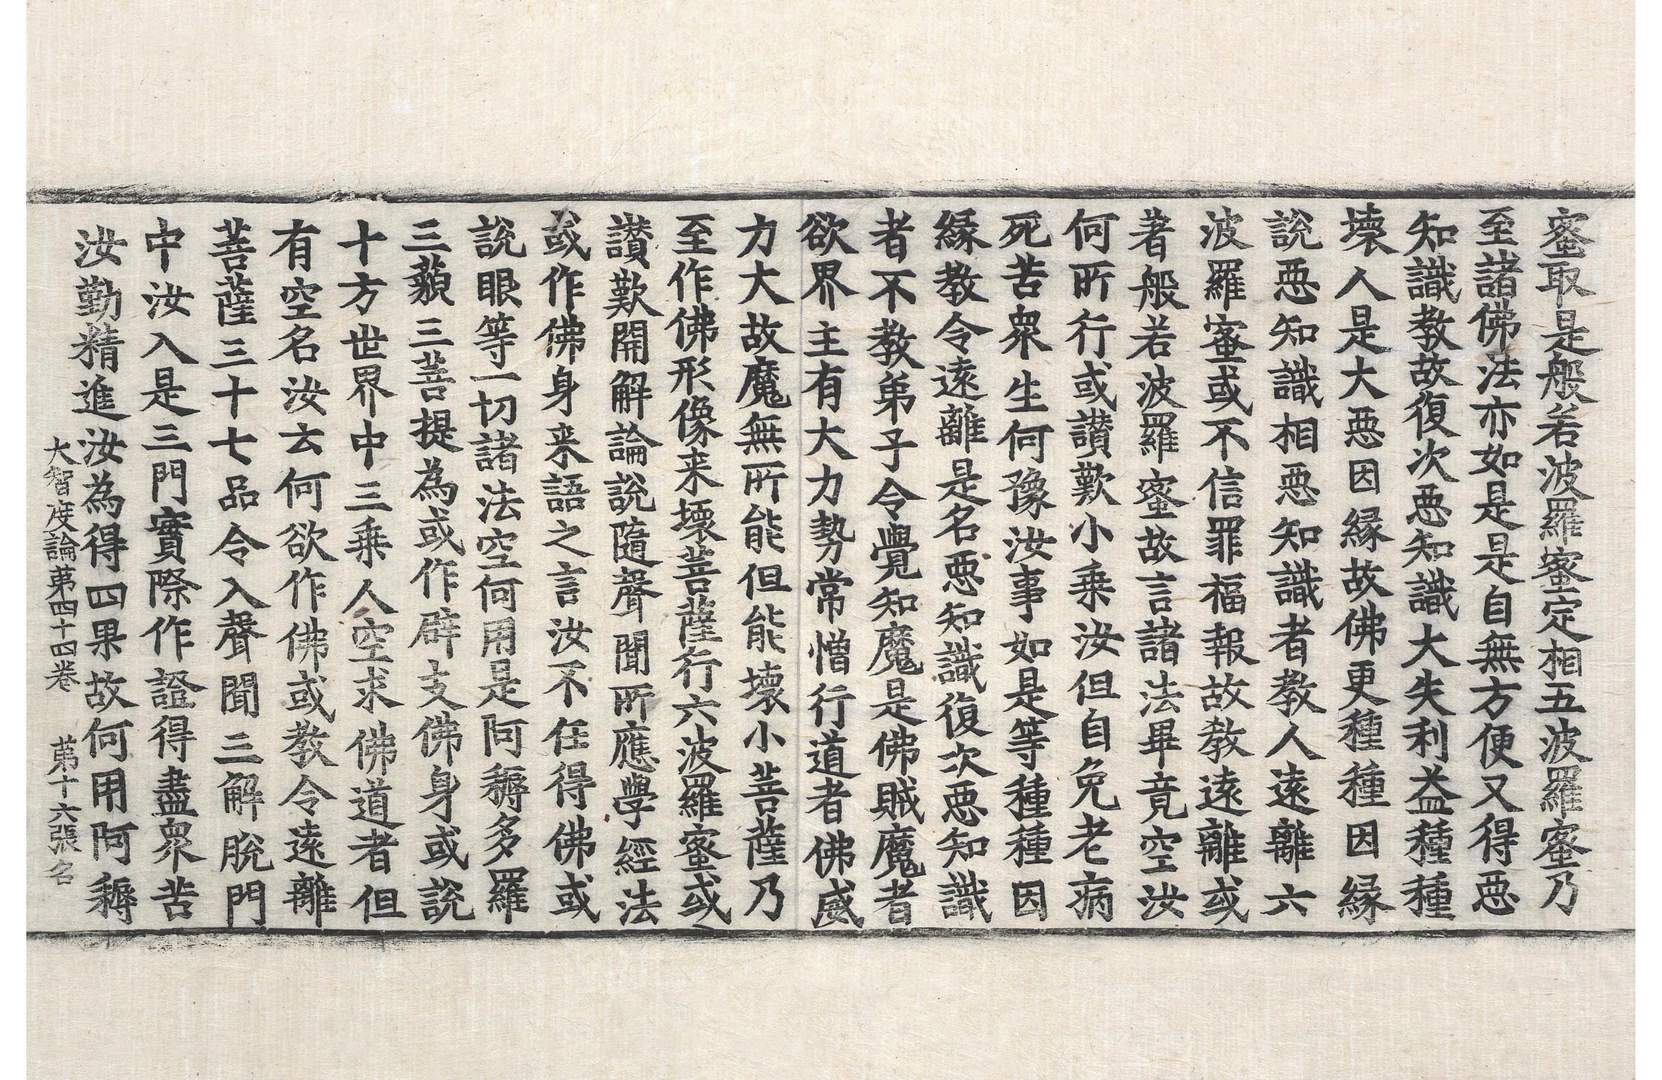 蜜取是般若波羅蜜定相五波羅蜜乃
至諸佛法亦如是是自無方便又得惡
知識教故復次惡知識大失利益種種
壞人是大惡因縁故佛更種種因縁
說惡知識相惡知識者教人遠離六
波羅蜜或不信罪福報故教遠離或
著般若波羅蜜故言諸法畢竟空汝
何所行或讃歎小乗汝但自免老病
死苦衆生何豫汝事如是等種種因
縁教令遠離是名惡知識復次惡知識
者不教弟子令覺知魔是佛賊魔者
欲界主有大力勢常憎行道者佛威
力大故魔無所能但能壞小菩薩乃
至作佛形像来壞菩薩行六波羅蜜或
讃歎開解論說隨聲聞所應學經法
或作佛身来語之言汝不任得佛或
說眼等一切諸法空何用是阿耨多羅
三藐三菩提為或作辟支佛身或說
十方世界中三乗人空求佛道者但
有空名汝云何欲作佛或教令遠離
菩薩三十七品令入聲聞三解脫門
中汝入是三門實際作證得盡衆苦
汝勤精進汝為得四果故何用阿耨
大智度論第四十四卷 第十六張名